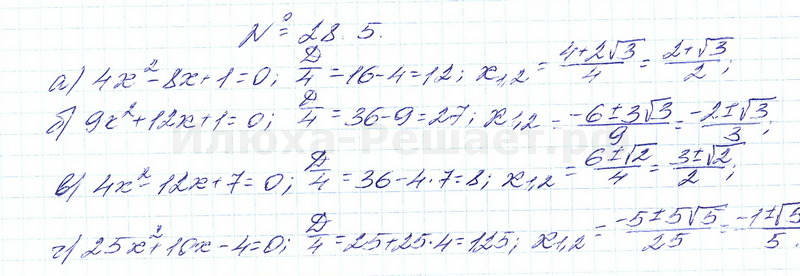 № 28.5.
а) 4x²-8x+1=0; D/4=16-4=12; x₁,₂=(4+2√3)/4=(2+√3)/2;
б) 9x²+12x+1=0; D/4=36-9=27; x₁,₂=(-6±3√3)/9=(-2±√3)/3;
в) 4x²-12x+7=0; D/4=36-4·7=8; x₁,₂=(6±√2)/4=(3±√2)/2;
г) 25x²+10x-4=0; D/4=25+25·4=125; x₁,₂=(-5±5√5)/25=(-1±√5)/5.
Илюха-Решает.р